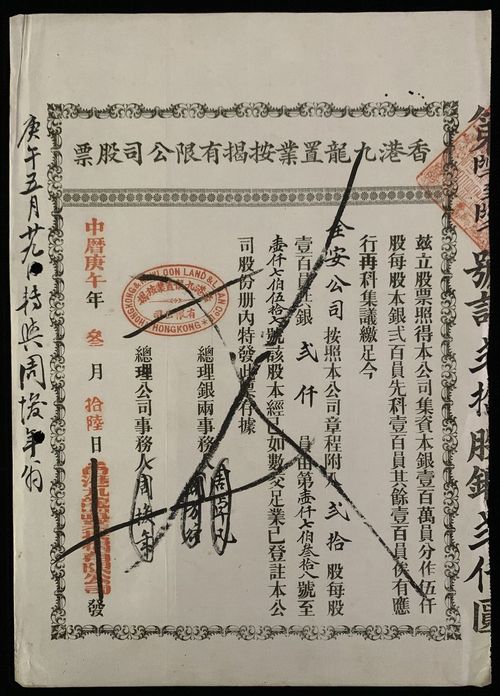 香港九龍置業按揭有限公司股票
第
號計弍拾股銀弍仟圓
茲立股票照得本公司集資本銀壹百萬員分作伍仟
股每股本銀弍百員先科壹百員其餘壹百員俟有應
行再科集議繳足今
全安公司按照本公司章程附入弍拾股每股
壹百員 銀弍仟員由第壹仟七佰叁拾八號至
壹仟七佰伍拾 號該股本經 如數交足業已登註本公
司股份册內特發此 有據
總理銀兩事務人
總理公司事務人 周埈年
HONGKONG & KOWLOON LAND & LOAN CO
HONGKONG
香港九龍置業按揭
有限公司
中曆庚午年叁月拾陸日
發
庚午五月 轉與周埈年翁